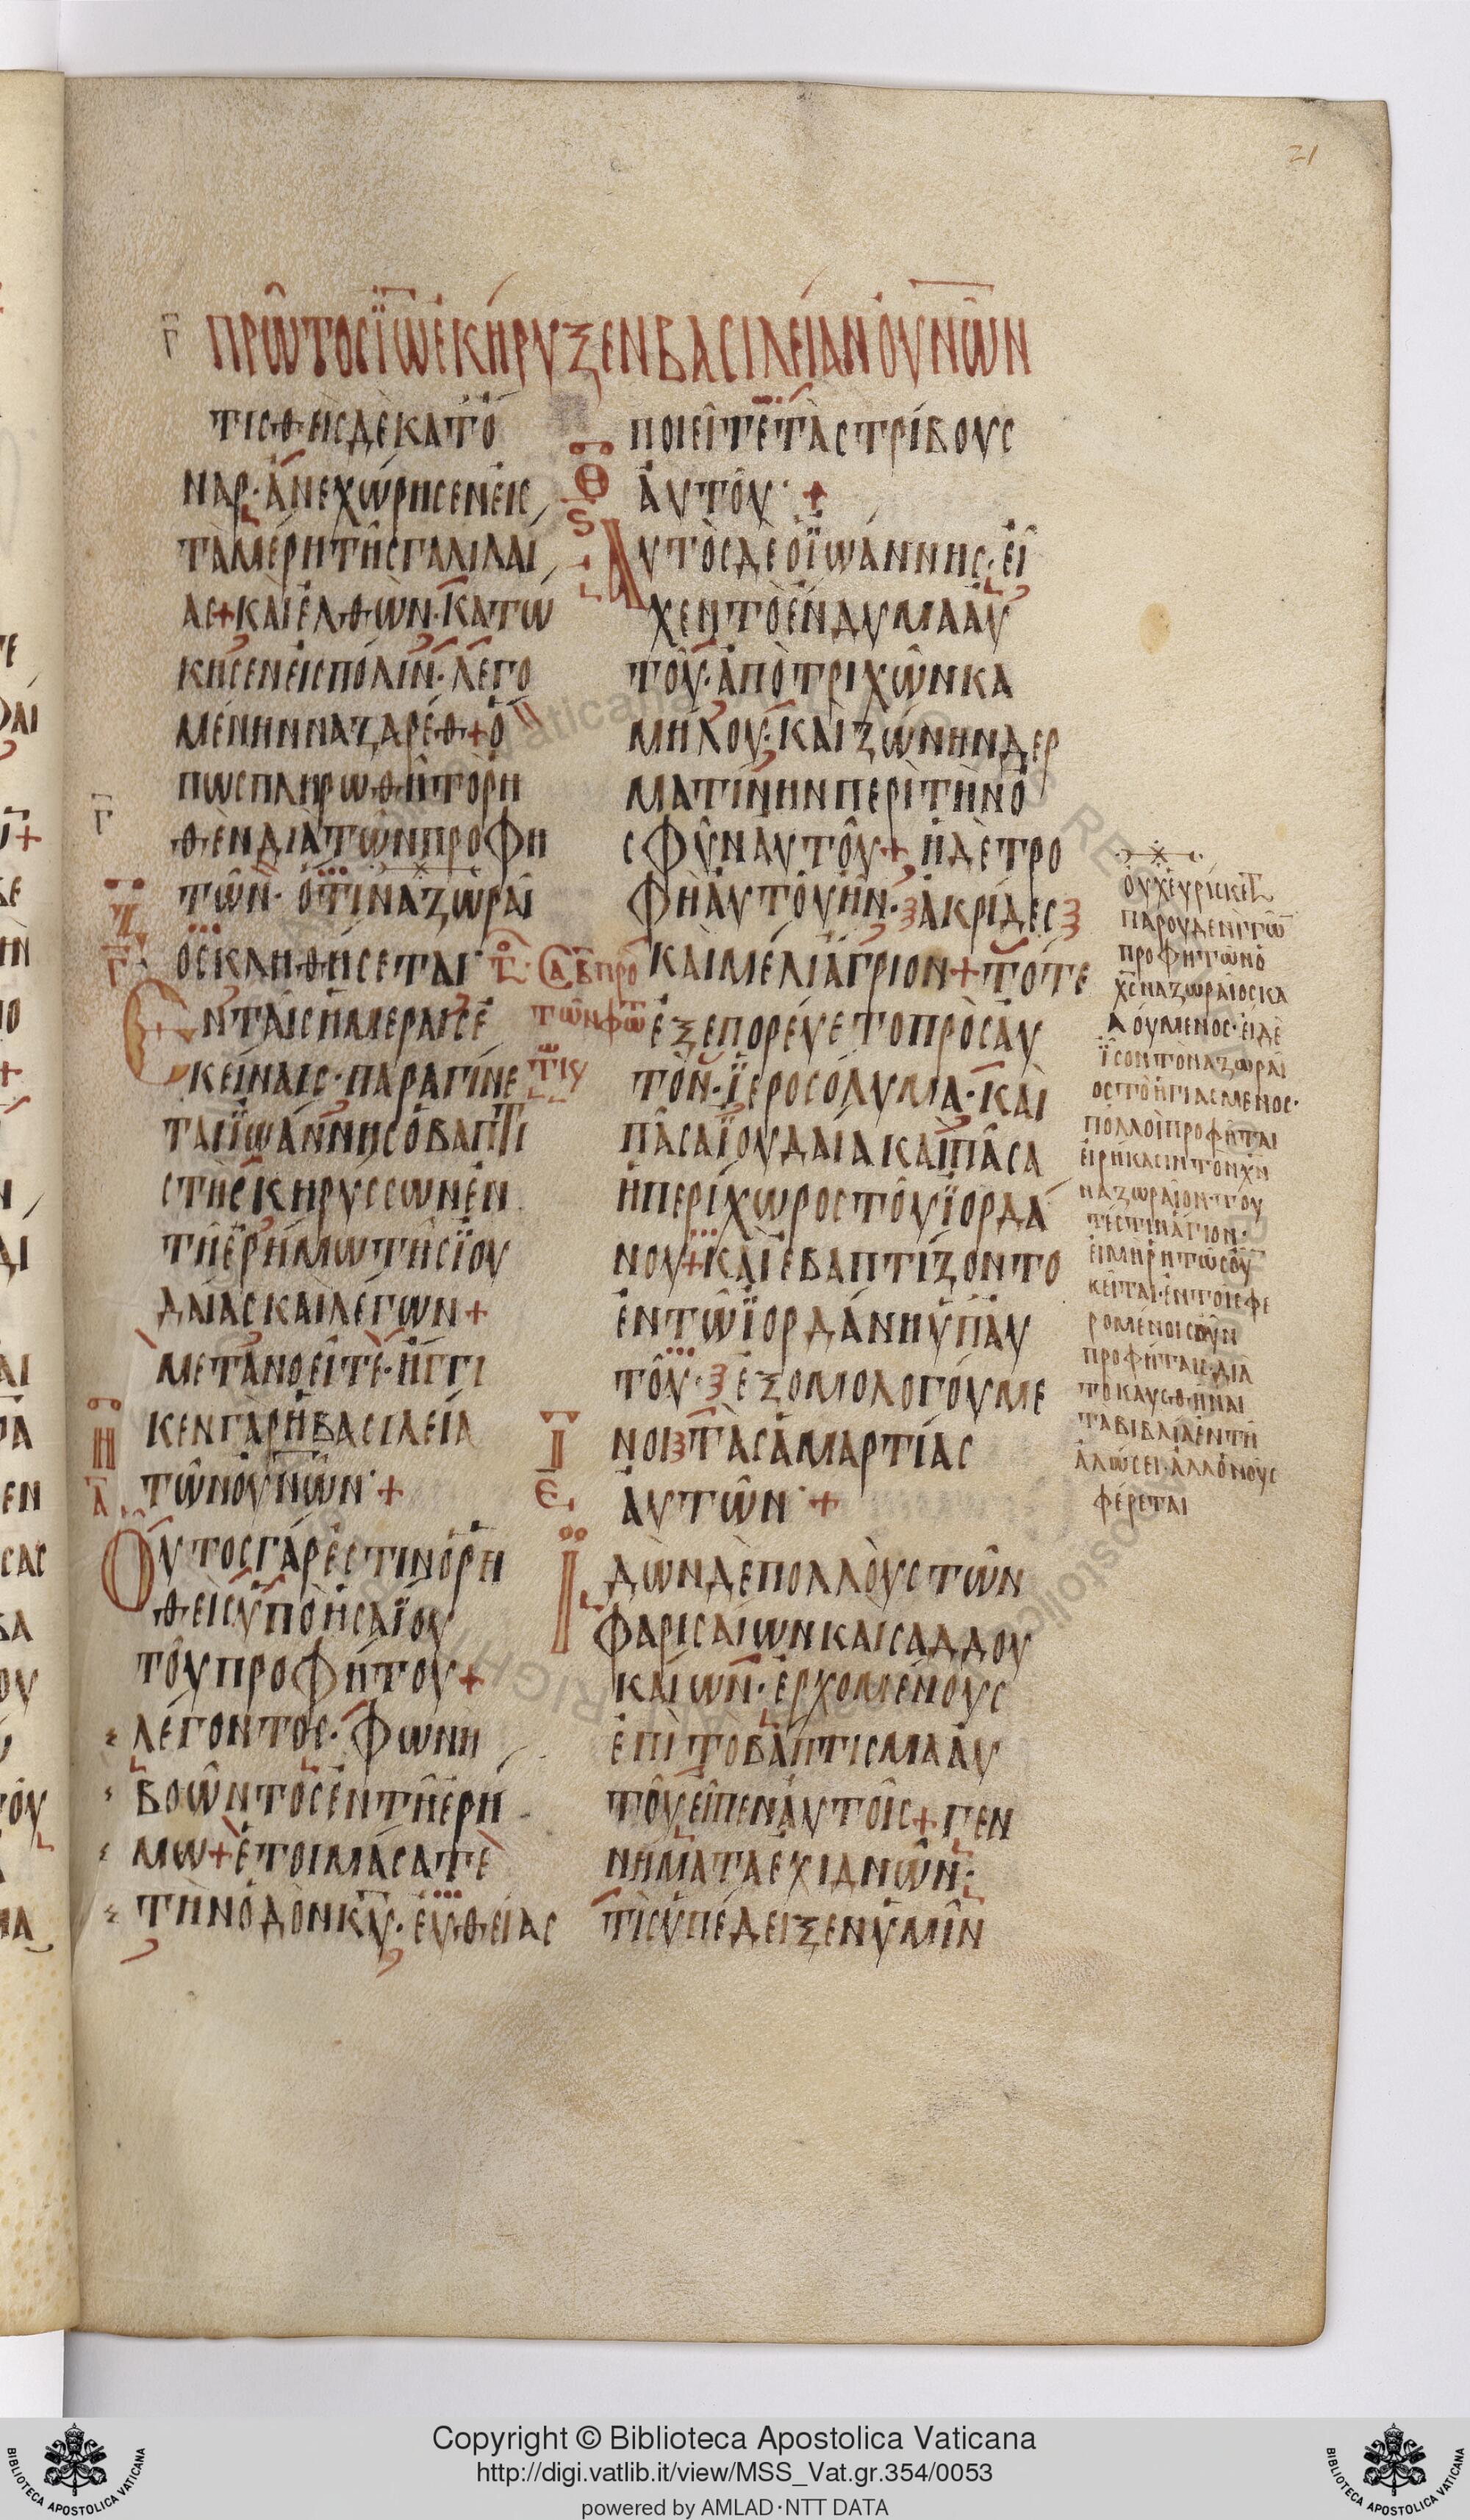 21
Γ̅ ΠΡΩ͂ΤΟΣ ΪΩ̅ ἘΚΉΡΥΞΕΝ ΒΑΣΙΛΕΊΑΝ ΟΥ̓ΝΩ͂Ν
ΤΙΣΘΕῚΣ ΔῈ ΚΑΤ ὌΝΑΡ
ΝΑΡ· ἈΝΕΧΏΡΗΣΕΝ ΕἸΣ
ΤᾺ ΜΈΡΗ ΤΗ͂Σ ΓΑΛΙΛΑΊ
ΑΣ + ΚΑῚ ἘΛΘῺΝ· ΚΑΤΩ
ΚΗΣΕΝ ΕἸΣ ΠΌΛΙΝ· ΛΕΓΟ
ΜΈΝΗΝ ΝΑΖΑΡΈΘ + Ὅ
ΠΩΣ ΠΛΗΡΩΘΗ͂ ΤῸ ΡΗ
ΘῈΝ ΔΙᾺ ΤΩ͂Ν ΠΡΟΦΗ
ΤΩ͂Ν· ὍΤΙ ΝΑΖΩΡΑΪ
ΟΣ ΚΛΗΘΉΣΕΤΑΙ·
ἘΝ ΤΑΙ͂Σ ἩΜΈΡΑΙΣ Ἐ
ΚΕΊΝΑΙΣ· ΠΑΡΑΓΊΝΕ
ΤΑΙ ΪΩΆΝΝΗΣ Ὁ ΒΑΠΤΙ
ΣΤῊΣ ΚΗΡΥΣΣΩΝ ἘΝ
ΤΗ͂ ἘΡΉΜΩ ΤΗ͂Σ ΪΟΥ
ΔΑΊΑΣ ΚΑῚ ΛΈΓΩΝ +
ΜΕΤΑΝΟΕΙ͂ΤΕ· ἬΓΓΙ
ΚΕΝ ΓᾺΡ Ἡ ΒΑΣΙΛΕΊΑ
ΤΩ͂Ν ΟΥ̓ΝΩ͂Ν· +
ΟΥ͂ΤΟΣ ΓΆΡ ἘΣΤΙΝ Ὁ ΡΗ
ΘΕῚΣ ΥΠῸ ἩΣΑΪΟΥ
ΤΟΥ͂ ΠΡΟΦΉΤΟΥ +
ΛΈΓΟΝΤΟΣ· ΦΩΝῊ
ΒΟΩ͂ΝΤΟΣ ἘΝ ΤΗ͂ ἘΡΉ
ΜΩ + ἙΤΟΙΜΆΣΑΤΕ
ΤῊΝ ὉΔῸΝ Κ̅Υ̅· ΕΥ̓ΘΕΊΑΣ
ΠΟΙΕΙ͂ΤΕ ΤᾺΣ ΤΡΊΒΟΥΣ
ΑΥ̓ΤΟΥ͂· +
ΑΥ̓ΤῸΣ ΔΕ Ὁ ΪΩΆΝΝΗΣ· ΕἾ
ΧΕΝ ΤῸ ἘΝΔΥΜΑ ΑΥ̓
ΤΟΥ͂· ἈΠῸ ΤΡΙΧΩ͂Ν ΚΑ
ΜΉΛΟΥ· ΚΑῚ ΖΏΝΗΝ ΔΕΡ
ΜΑΤΊΝΗΝ ΠΕΡῚ ΤῊΝ Ὀ
ΣΦΥ͂Ν ΑΥ̓ΤΟΥ͂ + Ἡ ΔῈ ΤΡΟ
ΦῊ ΑΥ̓ΤΟΥ͂ ἮΝ· ἈΚΡΊΔΕΣ
ΚΑῚ ΜΈΛΙ ἌΓΡΙΟΝ + ΤΌΤΕ
ἘΞΕΠΟΡΕΎΕΤΟ ΠΡῸΣ ΑΥ̓
ΤῸΝ· ἹΕΡΟΣΌΛΥΜΑ· ΚΑῚ
ΠΑ͂ΣΑ ΪΟΥΔΑΊΑ ΚΑῚ ΠΑ͂ΣΑ
Ἡ ΠΕΡΊΧΩΡΟΣ ΤΟΥ͂ ΪΟΡΔΆ
ΝΟΥ + ΚΑῚ ἘΒΑΠΤΊΖΟΝΤΟ
ἘΝ ΤΩ͂ ΪΟΡΔΆΝΗ ΥΠ ΑΥ̓
ΤΟΥ͂· ἘΞΟΜΟΛΟΓΟΎΜΕ
ΝΟΙ ΤᾺΣ ἉΜΑΡΤΊΑΣ
ΑΥ̓ΤΩ͂Ν· +
ΪΔῺΝ ΔῈ ΠΟΛΛΟῪΣ ΤΩ͂Ν
ΦΑΡΙΣΑΊΩΝ ΚΑΙ ΣΑΔΔΟΥ
ΚΑΊΩΝ· ἘΡΧΟΜΈΝΟΥΣ
ἘΠῚ ΤΟ ΒΆΠΤΙΣΜΑ ΑΥ̓
ΤΟΥ͂ ΕἾΠΕΝ ΑΥ̓ΤΟΙ͂Σ + ΓΕΝ
ΝΉΜΑΤΑ ΕΧΙΔΝΩ͂Ν·
ΤῚΣ ΥΠΈΔΕΙΞΕΝ ΥΜΙ͂Ν
ΟΥ̓Χ ΕΥΡΊΣΚΕΤ
ΠΑΡ ΟΥΔΕΝῚ ΤΩ͂
ΠΡΟΦΗΤΩ͂Ν Ὁ
Χ̅Σ̅ ΝΑΖΩΡΑΙ͂ΟΣ ΚΑ
ΛΟΎΜΕΝΟΣ· ΕἸ ΔῈ
ΪΣΟΝ ΤῸ ΝΑΖΩΡΑΪ
ΟΣ ΤῸ ἩΓΙΑΣΜΕΝΟΣ·
ΠΟΛΛΟῚ ΠΡΟΦΗ͂ΤΑΙ
ΕἸΡΉΚΑΣΙΝ ΤῸΝ Χ̅Ν̅
ΝΑΖΩΡΑΙ͂ΟΝ· ΤΟΥ
ΤΈΣΤΙΝ ἍΓΙΟΝ·
ΕἸ ΜῊ ΡΗΤΩ͂Σ ΟΥ̓
ΚΕΙ͂ΤΑΙ· ἘΝ ΤΟΙ͂Σ ΦΕ
ΡΟΜΈΝΟΙΣ ΟΥ͂Ν
ΠΡΟΦΉΤΑΙΣ· ΔΙᾺ
ΤΟ ΚΑΥΘΗ͂ΝΑΙ
ΤᾺ ΒΙΒΛΊΑ ἘΝ ΤΗ͂
ἉΛΏΣΕΙ· ἈΛΛ Ὁ ΝΟΥ͂Σ
ΦΈΡΕΤΑΙ
Copyright © Biblioteca Apostolica Vaticana
http://digi.vatlib.it/view/MSS_Vat.gr.354/0053
powered by AMLAD·NTT DATA
BIBLIOTECA APOSTOLICA VATICANA
BIBLIOTECA APOSTOLICA VATICANA